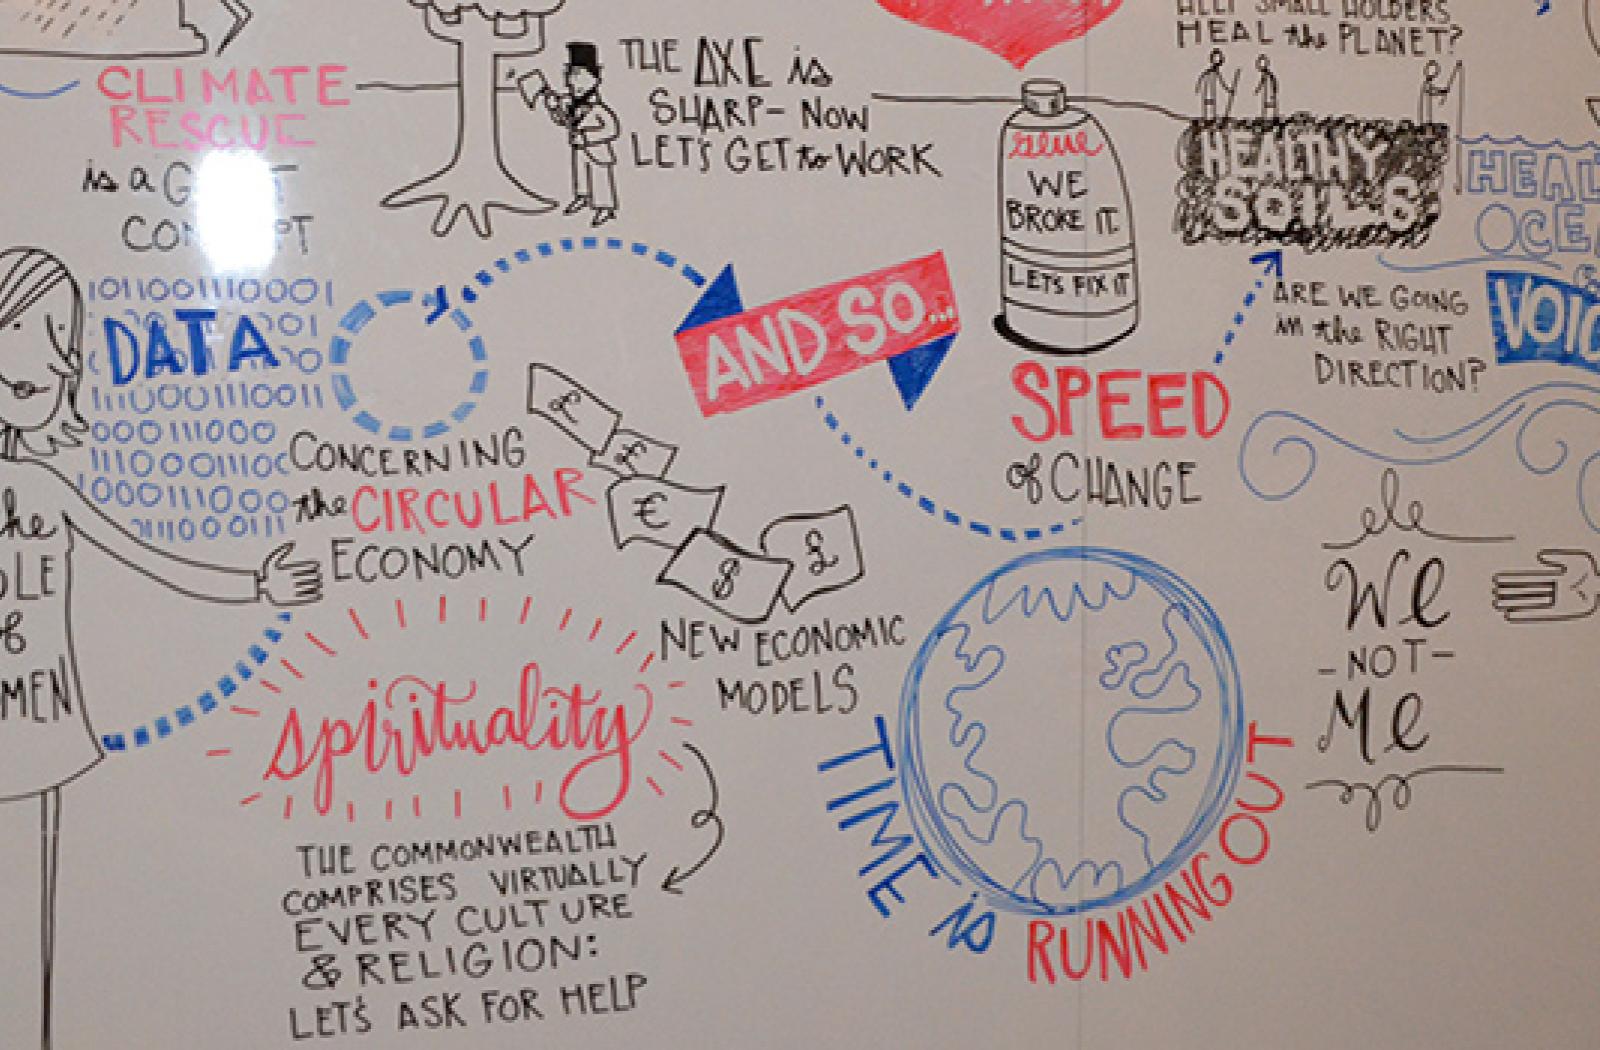 HELP SMALL HOLDERS
HEAL the PLANET?
CLIMATE
RESCUE
is a
THE AXE is
SHARP - NOW
LET'S GET to WORK
Glue
WE
BROKE IT.
LET'S FIX IT
HEALTHY
SOILS
HEAL
OCEA
1011001110001
DATA
AND SO...
ARE WE GOING
in the RIGHT
DIRECTION?
VOIC
SPEED
of CHANGE
CONCERNING
the CIRCULAR
ECONOMY
£
£
€
$
£
NEW ECONOMIC
MODELS
the
OLE
of
MEN
spirituality
THE COMMONWEALTH
COMPRISES VIRTUALLY
EVERY CULTURE
& RELIGION:
LET'S ASK FOR HELP
TIME is RUNNING OUT
We
-NOT-
Me